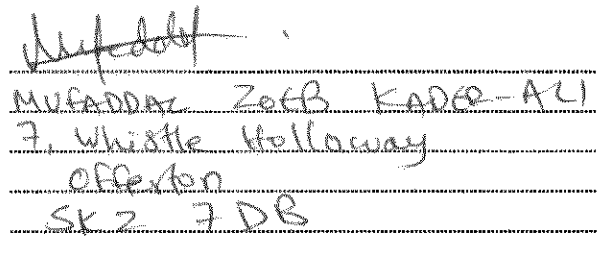 Mufaddal
MUFADDAL ZOEB KADER-ALI
7, Whistle Holloway
Offerton
SK2 7DB